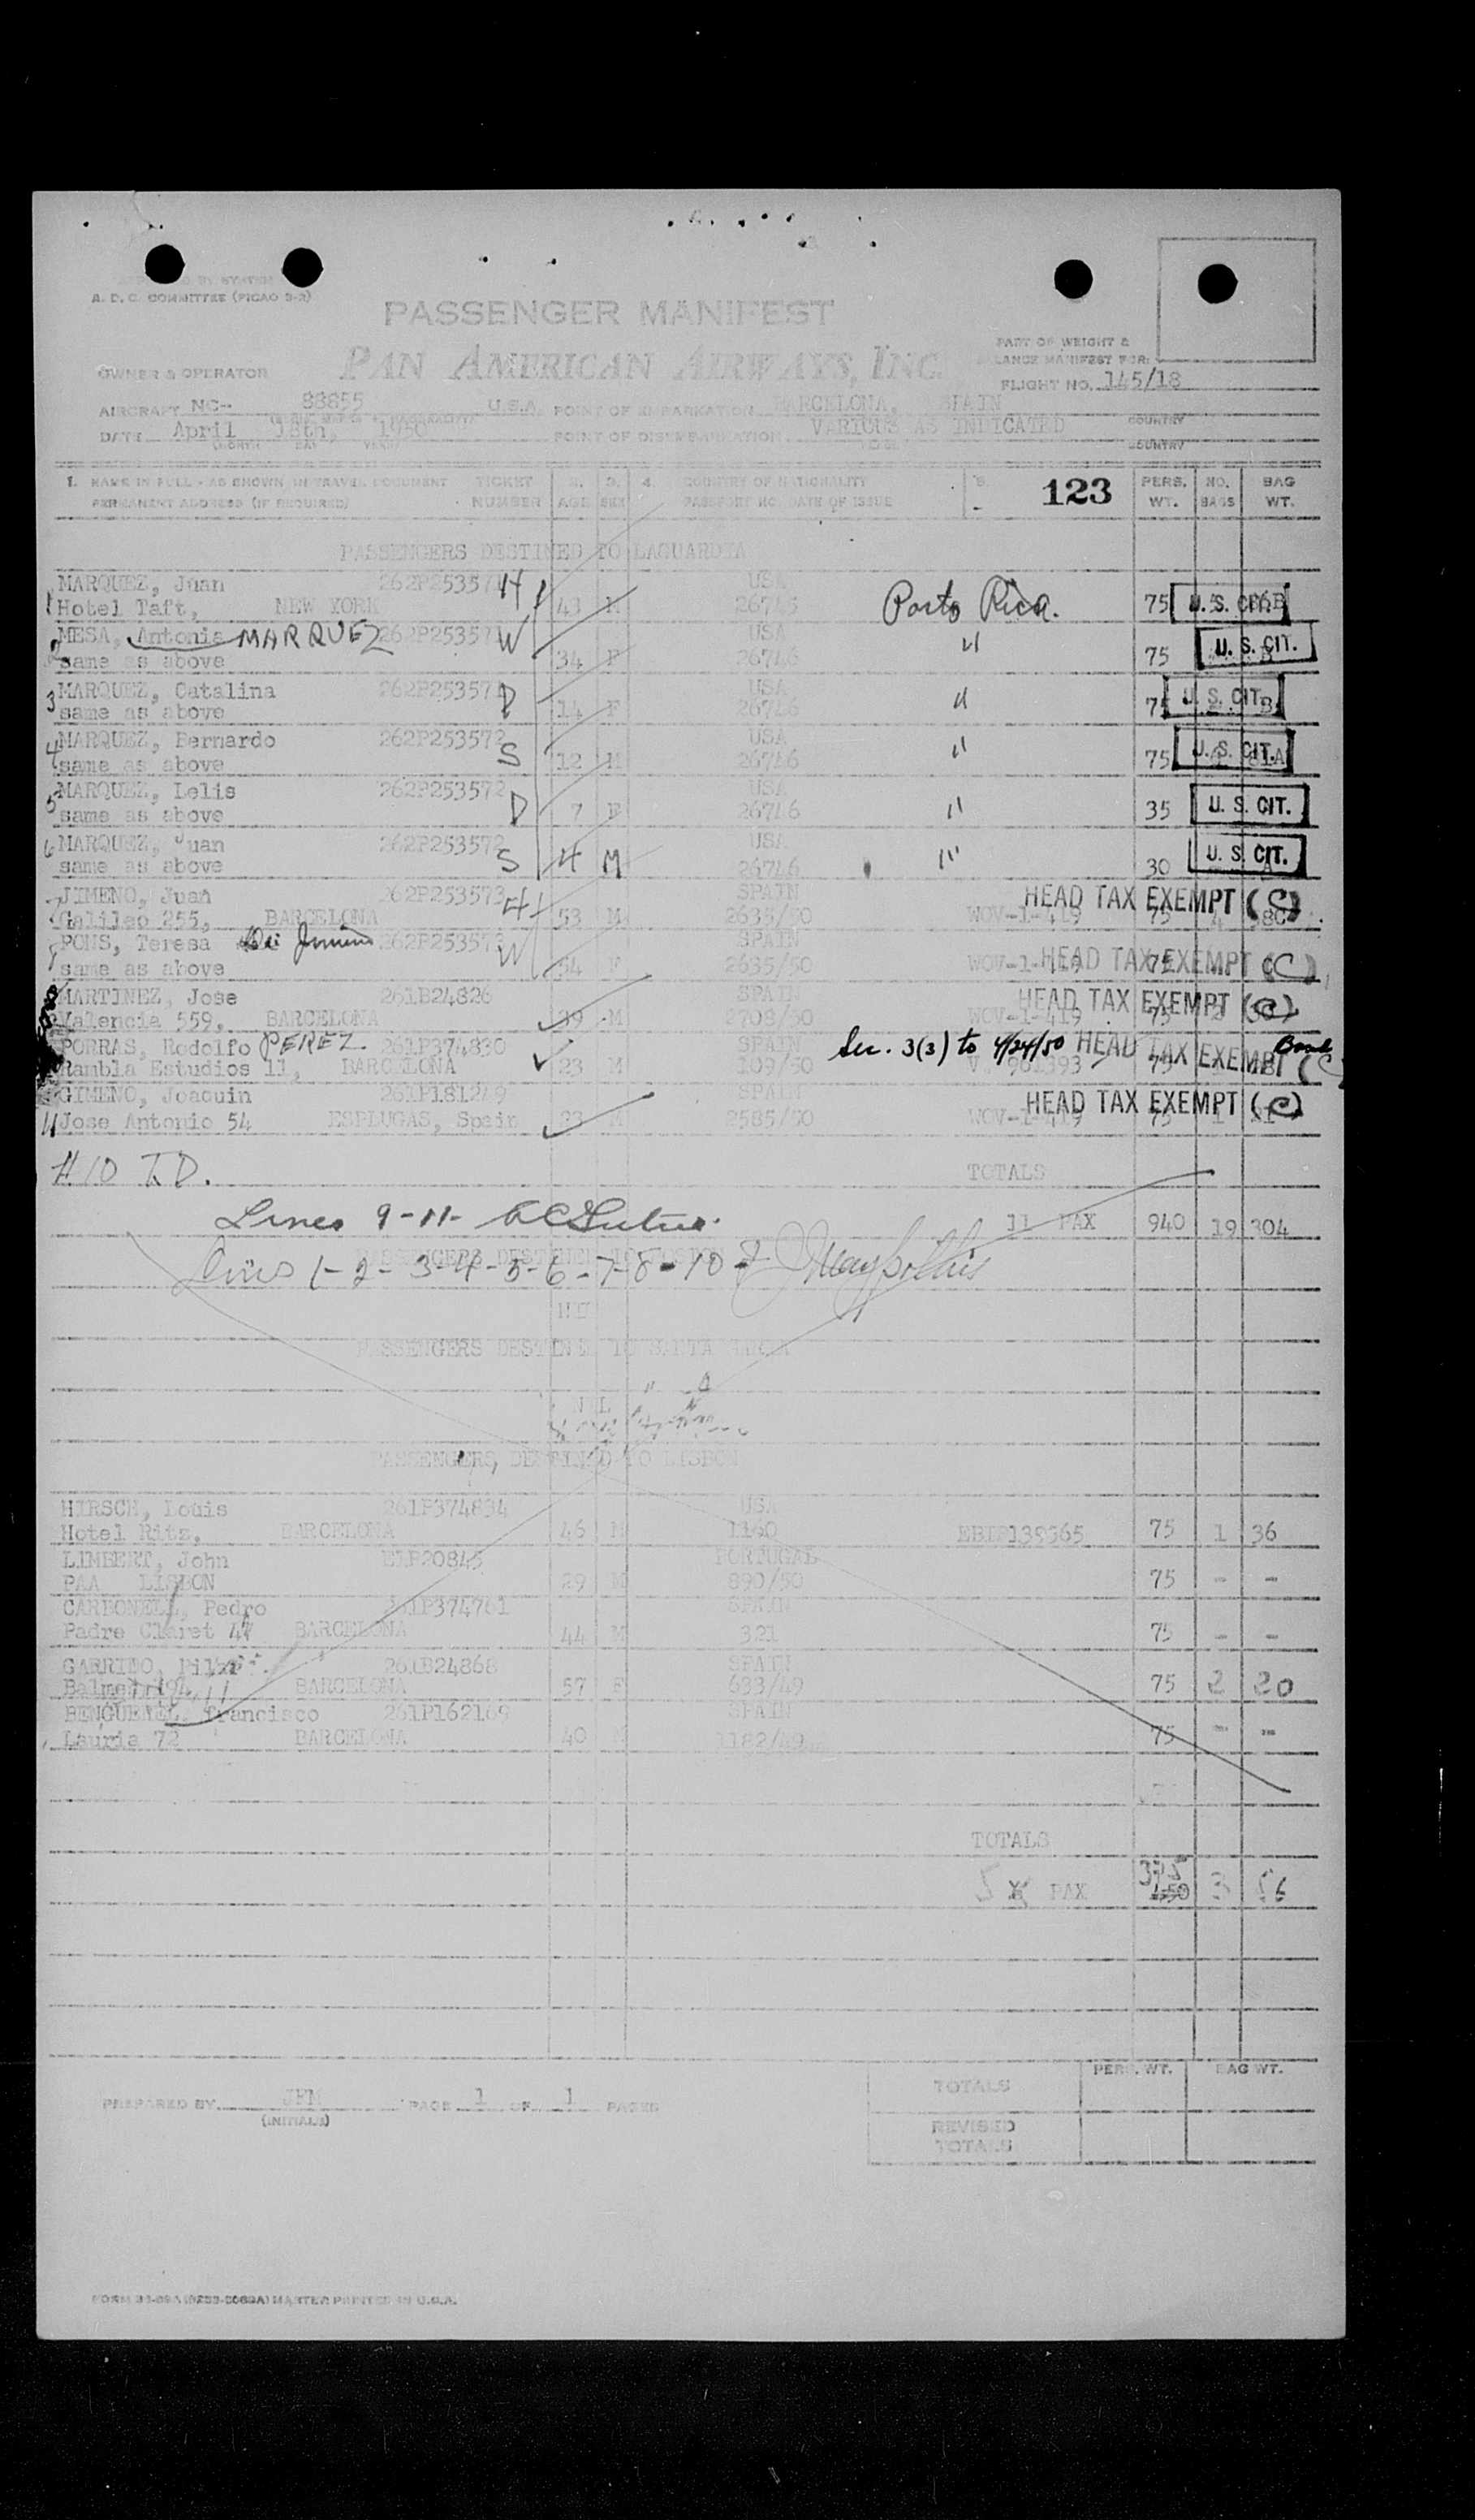 A. D. C. COMMITTEE (PICAO 9-2)
PASSENGER MANIFEST
PAN AMERICAN AIRWAYS, INC.
PART OF WEIGHT &
BALANCE MANIFEST FOR:
OWNER & OPERATOR
FLIGHT NO. 145/18
AIRCRAFT NC-- 88855 U.S.A. POINT OF EMBARKATION BARCELONA, SPAIN
COUNTRY
DATE April 18th, 1950 POINT OF DISEMBARKATION VARIOUS AS INDICATED
COUNTRY
1. NAME IN FULL - AS SHOWN IN TRAVEL DOCUMENT TICKET 2. 3. 4. COUNTRY OF NATIONALITY 5. 123 PERS. NO. BAG
PERMANENT ADDRESS (IF REQUIRED) NUMBER AGE SEX PASSPORT NO. DATE OF ISSUE WT. BAGS WT.
PASSENGERS DESTINED TO LAGUARDIA
MARQUEZ, Juan 262P253571 H USA
1 Hotel Taft, NEW YORK 43 M 26746 Porto Rico. 75 U. S. CIT.
MESA, Antonia MARQUEZ 262P253571 W USA "
2 same as above 34 F 26746 75 U. S. CIT.
MARQUEZ, Catalina 262P253571 D USA "
3 same as above 14 F 26746 75 U. S. CIT.
MARQUEZ, Bernardo 262P253572 USA "
4 same as above S 12 M 26746 75 U. S. CIT.
MARQUEZ, Lelis 262P253572 USA
5 same as above D 7 F 26746 " 35 U. S. CIT.
6 MARQUEZ, Juan 262P253572 USA "
same as above S 4 M 26746 30 U. S. CIT.
7 JIMENO, Juan 262P253573 H SPAIN HEAD TAX EXEMPT (C)
Galileo 255, BARCELONA 53 M 2635/50 WOV-1-419 75 4 80
8 PONS, Teresa de Jimeno 262P253573 W SPAIN
same as above 54 F 2635/50 WOV-1-419 75 HEAD TAX EXEMPT (C)
MARTINEZ, Jose 261B24826 SPAIN HEAD TAX EXEMPT (C)
Valencia 559, BARCELONA 39 M 2708/50 WOV-1-419 75
PORRAS, Rodolfo PEREZ. 261P374830 SPAIN Sec. 3(3) to 4/24/50 HEAD TAX EXEMPT (C) Bond
Rambla Estudios 11, BARCELONA 23 M 109/50 V. 961393 75
GIMENO, Joaquin 261P181249 SPAIN HEAD TAX EXEMPT (C)
11 Jose Antonio 54 ESPLUGAS, Spain 23 M 2585/50 WOV-1-419 75 1
#10 T.D. TOTALS
Lines 9-11-
11 PAX 940 19 304
PASSENGERS DESTINED TO BOSTON
Lines 1-2-3-4-5-6-7-8-10-
NIL
PASSENGERS DESTINED TO SANTA LUCIA
NIL
PASSENGERS DESTINED TO LISBON
HIRSCH, Louis 261P374834 USA
Hotel Ritz, BARCELONA 46 M 1160 EBIP138565 75 1 36
LIMBERT, John ELP20845 PORTUGAL
PAA LISBON 29 M 890/50 75 - -
CARBONELL, Pedro 261P374761 SPAIN
Padre Claret 47 BARCELONA 44 M 321 75 - -
GARRIDO, Pilar 261B24868 SPAIN
Balmes 194, BARCELONA 57 F 633/49 75 2 20
BENGUEREL, Francisco 261P162169 SPAIN
Lauria 72 BARCELONA 40 M 1182/49 75 - -
TOTALS
375
5 PAX 450 3 56
PERS. WT. BAG WT.
TOTALS
PREPARED BY JFM PAGE 1 OF 1 PAGES
(INITIALS)
REVISED
TOTALS